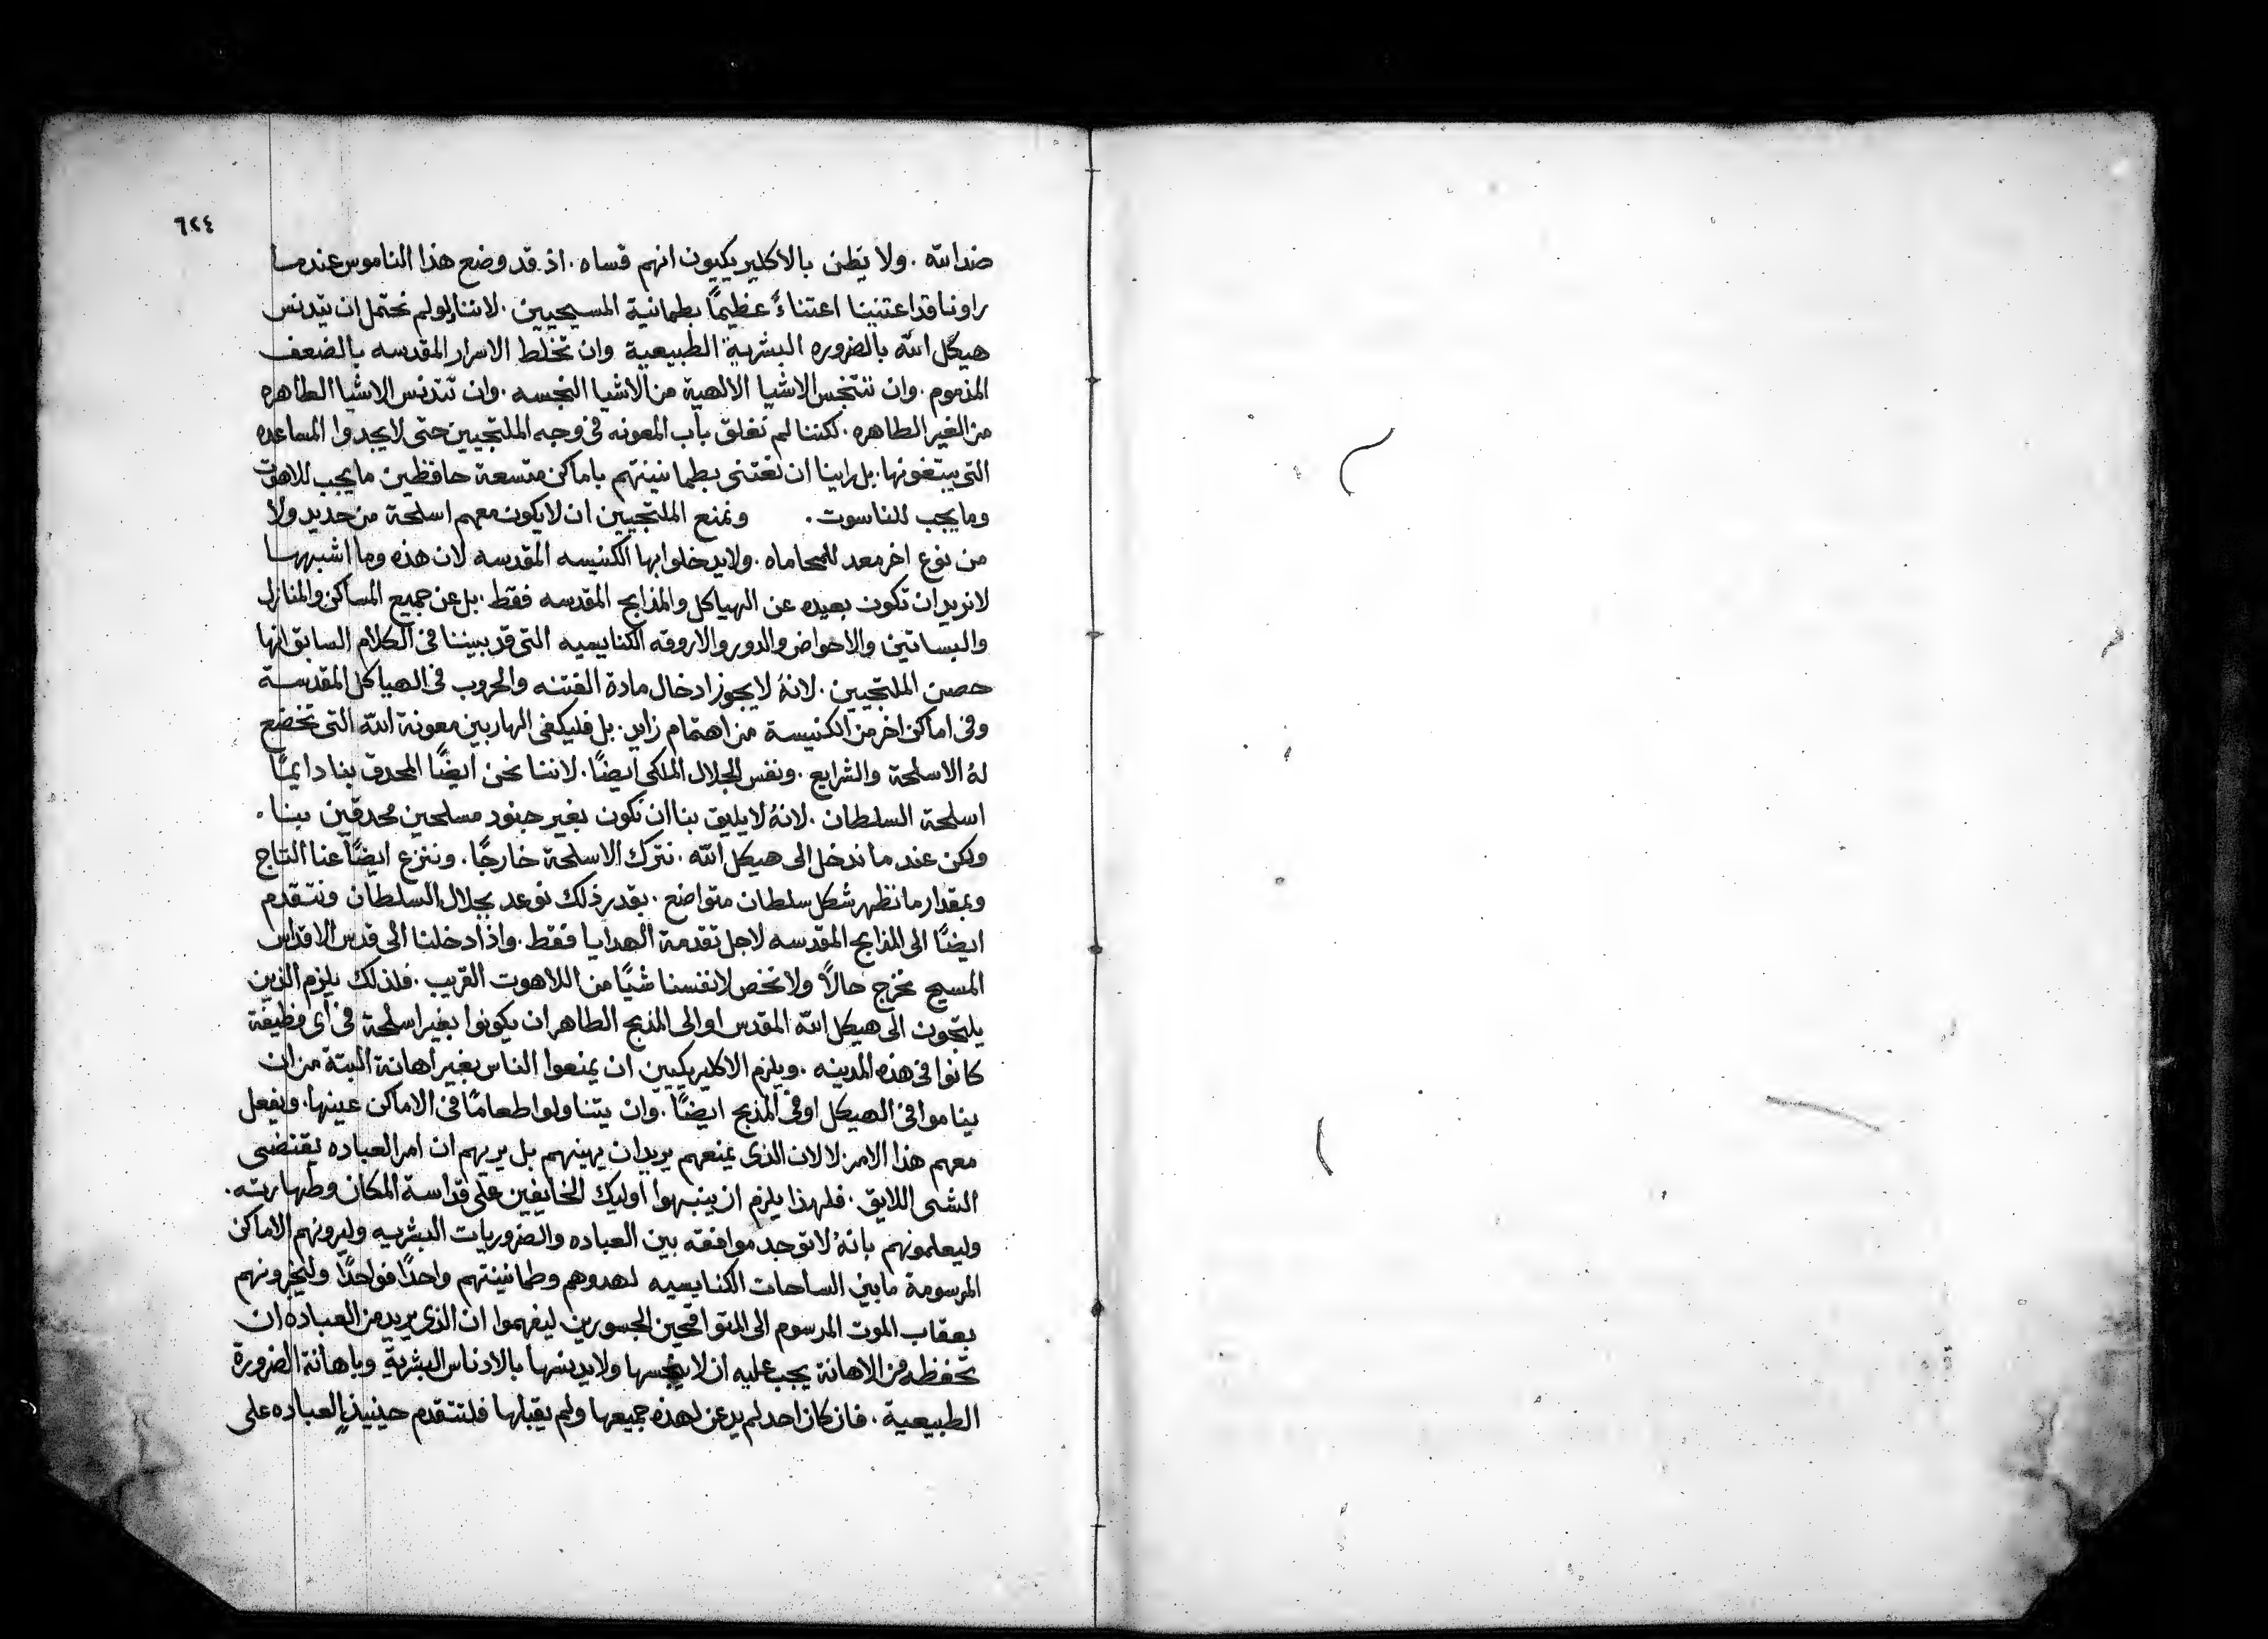 ٦٢٤
ضد الله . ولا يظن بالاكليريكيون انهم قساه . اذ قد وضع هذا الناموس عندما
راونا قد اعتنينا اعتناءً عظيمًا بطمانية المسيحيين . لاننا لو لم نحتمل ان يتدنس
هيكل الله بالضروره البشرية الطبيعية وان تختلط الاسرار المقدسه بالضعف
المذموم . وان تتنجس الاشيا الالهية من الاشيا النجسه . وان تتدنس الاشيا الطاهره
من الغير الطاهره . لكننا لم نغلق باب المعونه في وجه الملتجيين حتى لا يجدوا المساعده
التي يبتغونها . بل راينا ان نعتني بطمانينتهم باماكن متسعة حافظين ما يجب للاهوت
وما يجب للناسوت . ونمنع الملتجيين ان لا يكون معهم اسلحة من حديد ولا
من نوع اخر معد للمحاماه . ولا يدخلوا بها الكنيسه المقدسه لان هذه وما اشبهها
لا نريد ان تكون بعيده عن الهياكل والمذابح المقدسه فقط . بل عن جميع المساكن والمنازل
والبساتين والاحواض والدور والاروقه الكنايسيه التي قد بيننا في الكلام السابق انها
حصن الملتجيين . لانهُ لا يجوز ادخال مادة الفتنه والحروب في الهياكل المقدسة
وفي اماكن اخر من الكنيسة من اهتمام زايد . بل فليكفى الهاربين معونة الله التي تخضع
لهُ الاسلحة والشرايع . ونفس الجلال الملكي ايضًا . لاننا نحن ايضًا المحدق بنا دايمًا
اسلحة السلطان . لانهُ لا يليق بنا ان نكون بغير جنود مسلحين محدقين بنا .
ولكن عند ما ندخل الى هيكل الله . نترك الاسلحة خارجًا . وننزع ايضًا عنا التاج
وبمقدار ما نظهر شكل سلطان متواضع . بقدر ذلك نوعد بجلال السلطان ونتقدم
ايضًا الى المذابح المقدسه لاجل تقدمة الهدايا فقط . واذا دخلنا الى قدس الاقداس
المسيح نخرج حالاً ولا نخص لانفسنا شيًا من اللاهوت القريب . فلذلك يلزم الذين
يلتجون الى هيكل الله المقدس او الى المذبح الطاهر ان يكونوا بغير اسلحة في اي وظيفة
كانوا في هذه المدينه . ويلزم الاكليريكيين ان يمنعوا الناس بغير اهانة البتة من ان
يناموا في الهيكل او في المذبح ايضًا . وان يتناولوا طعامًا في الاماكن عينها . ويفعل
معهم هذا الامر لا لان الذي يمنعهم يريد ان يهينهم بل يريهم ان امر العباده يقتضي
الشي اللايق . فلهذا يلزم ان ينبهوا اوليك الخايفين على قداسة المكان وطهارته .
وليعلمونهم بانهُ لا توجد موافقه بين العباده والضروريات البشريه وليرونهم الاماكن
المرسومة ما بين الساحات الكنايسيه لهدوهم وطمانينتهم واحدًا فواحدًا وليخبرونهم
بعقاب الموت المرسوم الى المتواقحين الجسورين ليفهموا ان الذي يريد من العباده ان
تحفظه من الاهانة يجب عليه ان لا ينجسها ولا يدنسها بالادناس البشرية وباهانة الضرورة
الطبيعية . فان كان احد لم يدعن لهذه جميعها ولم يقبلها فلتتقدم حينيذٍ العباده على